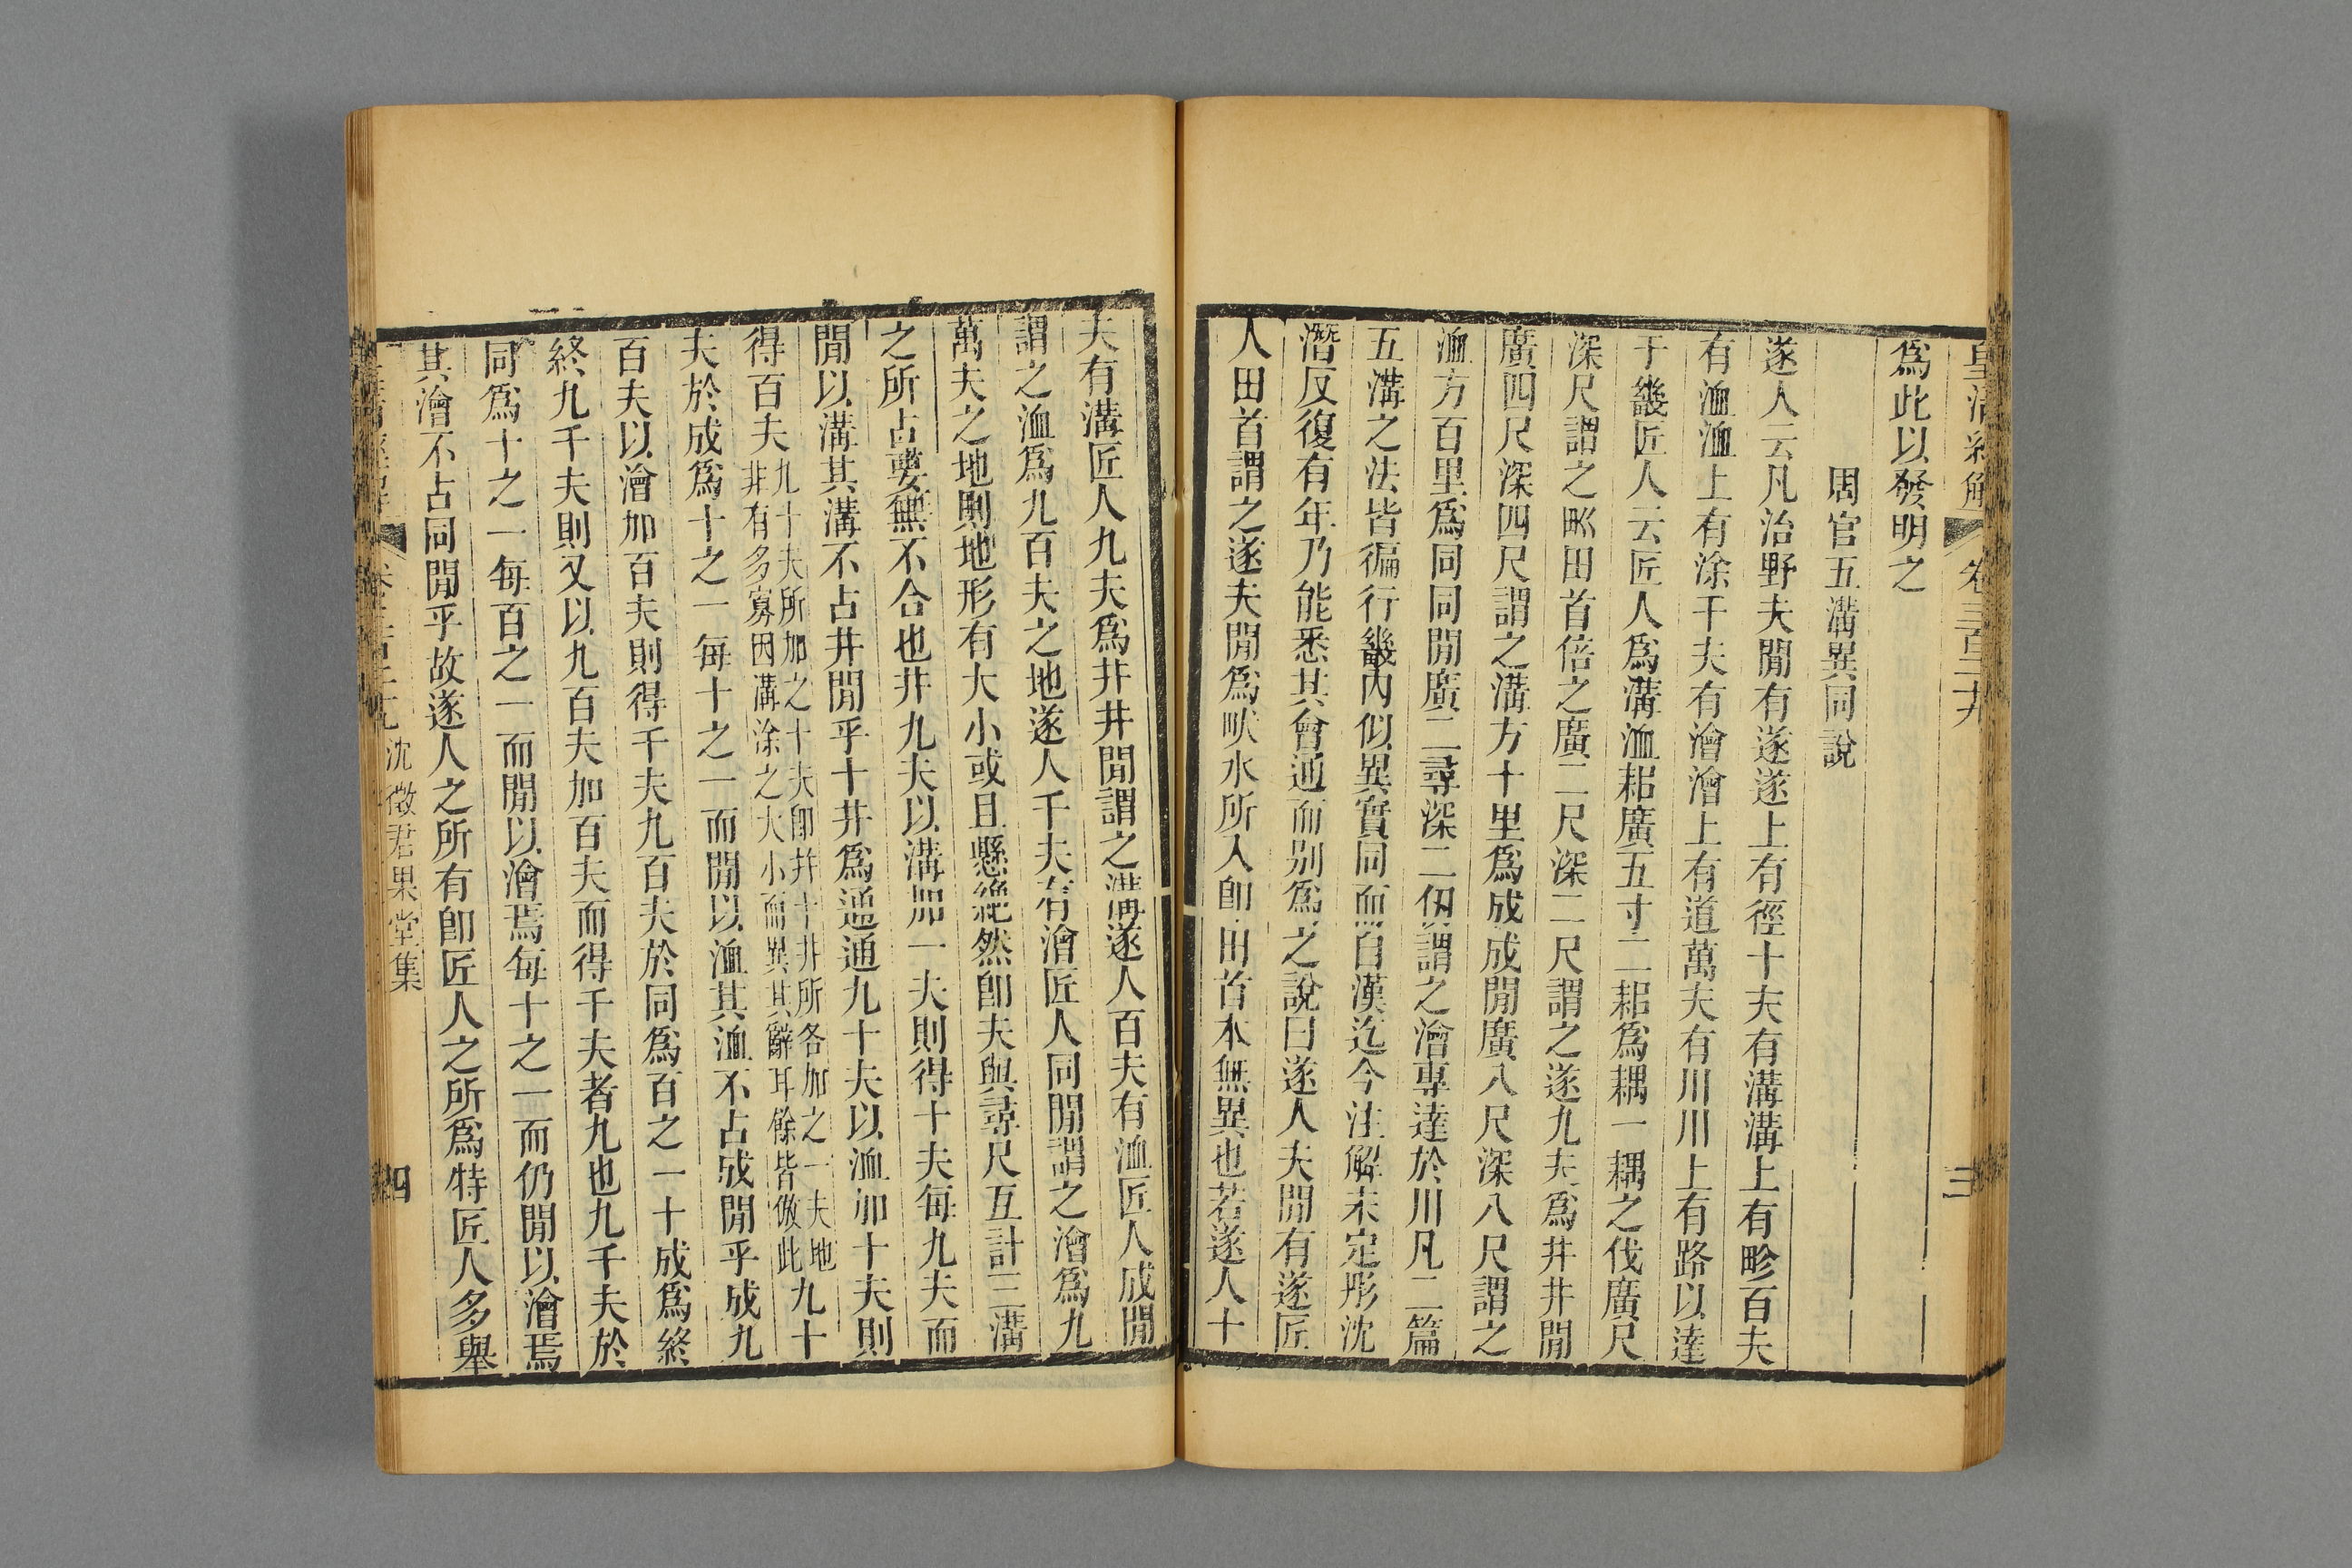 皇清經解 卷三百二十九 三
爲此以發明之
周官五溝異同說
遂人云凡治野夫閒有遂遂上有徑十夫有溝溝上有畛百夫
有洫洫上有涂千夫有澮澮上有道萬夫有川川上有路以達
于畿匠人云匠人爲溝洫耜廣五寸二耜爲耦一耦之伐廣尺
深尺謂之𤰝田首倍之廣二尺深二尺謂之遂九夫爲井井閒
廣四尺深四尺謂之溝方十里爲成成閒廣八尺深八尺謂之
洫方百里爲同同閒廣二尋深二仞謂之澮專達於川凡二篇
五溝之法皆徧行畿內似異實同而自漢迄今注解未定彤沈
潛反復有年乃能悉其會通而别爲之說曰遂人夫閒有遂匠
人田首謂之遂夫閒爲畎水所入卽田首本無異也若遂人十
夫有溝匠人九夫爲井井閒謂之溝遂人百夫有洫匠人成閒
謂之洫爲九百夫之地遂人千夫有澮匠人同閒謂之澮爲九
萬夫之地則地形有大小或且懸絶然卽夫與尋尺互計三溝
之所占要無不合也井九夫以溝加一夫則得十夫每九夫而
閒以溝其溝不占井閒乎十井爲通通九十夫以洫加十夫則
得百夫九十夫所加之十夫卽井十井所各加之一夫地非有多寡因溝涂之大小而異其辭耳餘皆倣此九十
夫於成爲十之一每十之一而閒以洫其洫不占成閒乎成九
百夫以澮加百夫則得千夫九百夫於同爲百之一十成爲終
終九千夫則又以九百夫加百夫而得千夫者九也九千夫於
同爲十之一每百之一而閒以澮焉每十之一而仍閒以澮焉
其澮不占同閒乎故遂人之所有卽匠人之所爲特匠人多舉
沈徵君果堂集 四